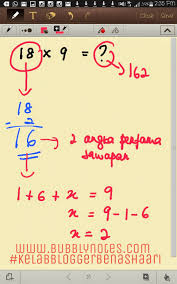 2:36 PM
18 × 9 = ?
162
18
- 2
16
2 angka pertama
jawapan
1 + 6 + x = 9
x = 9 - 1 - 6
x = 2
WWW.BUBBLYNOTES.COM
#KELABBLOGGERBENASHAARI